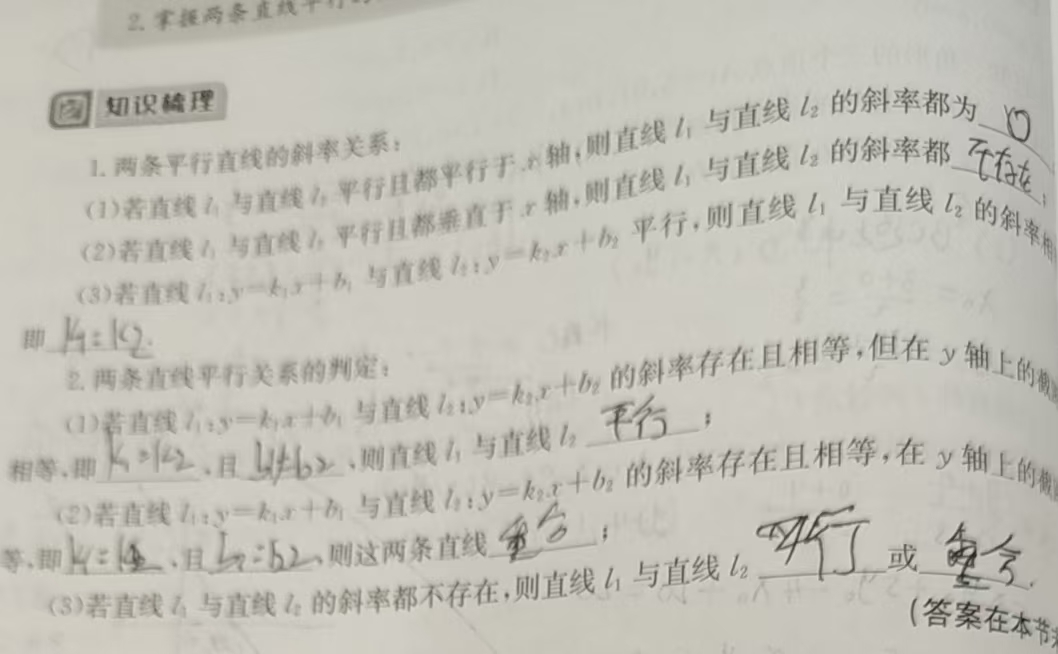 2. 掌握两条直线平行的
知识梳理
1. 两条平行直线的斜率关系:
(1)若直线 l₁ 与直线 l₂ 平行且都平行于 x 轴,则直线 l₁ 与直线 l₂ 的斜率都为 0
(2)若直线 l₁ 与直线 l₂ 平行且都垂直于 x 轴,则直线 l₁ 与直线 l₂ 的斜率都 不存在;
(3)若直线 l₁:y=k₁x+b₁ 与直线 l₂:y=k₂x+b₂ 平行,则直线 l₁ 与直线 l₂ 的斜率相
即 k₁=k₂.
2. 两条直线平行关系的判定:
(1)若直线 l₁:y=k₁x+b₁ 与直线 l₂:y=k₂x+b₂ 的斜率存在且相等,但在 y 轴上的截
相等,即 k₁=k₂ ,且 b₁≠b₂ ,则直线 l₁ 与直线 l₂ 平行;
(2)若直线 l₁:y=k₁x+b₁ 与直线 l₂:y=k₂x+b₂ 的斜率存在且相等,在 y 轴上的截
等,即 k₁=k₂ ,且 b₁=b₂,则这两条直线 重合;
(3)若直线 l₁ 与直线 l₂ 的斜率都不存在,则直线 l₁ 与直线 l₂ 平行 或 重合.
(答案在本节